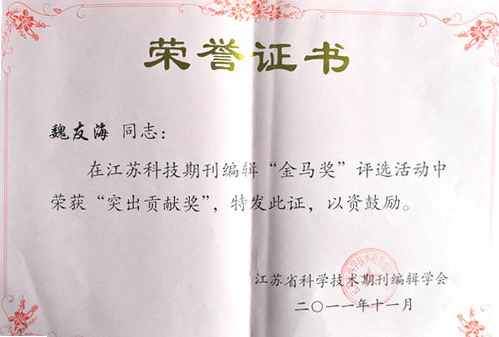 荣誉证书
魏友海 同志：
在江苏科技期刊编辑“金马奖”评选活动中
荣获“突出贡献奖”，特发此证，以资鼓励。
江苏省科学技术期刊编辑学会
二〇一一年十一月